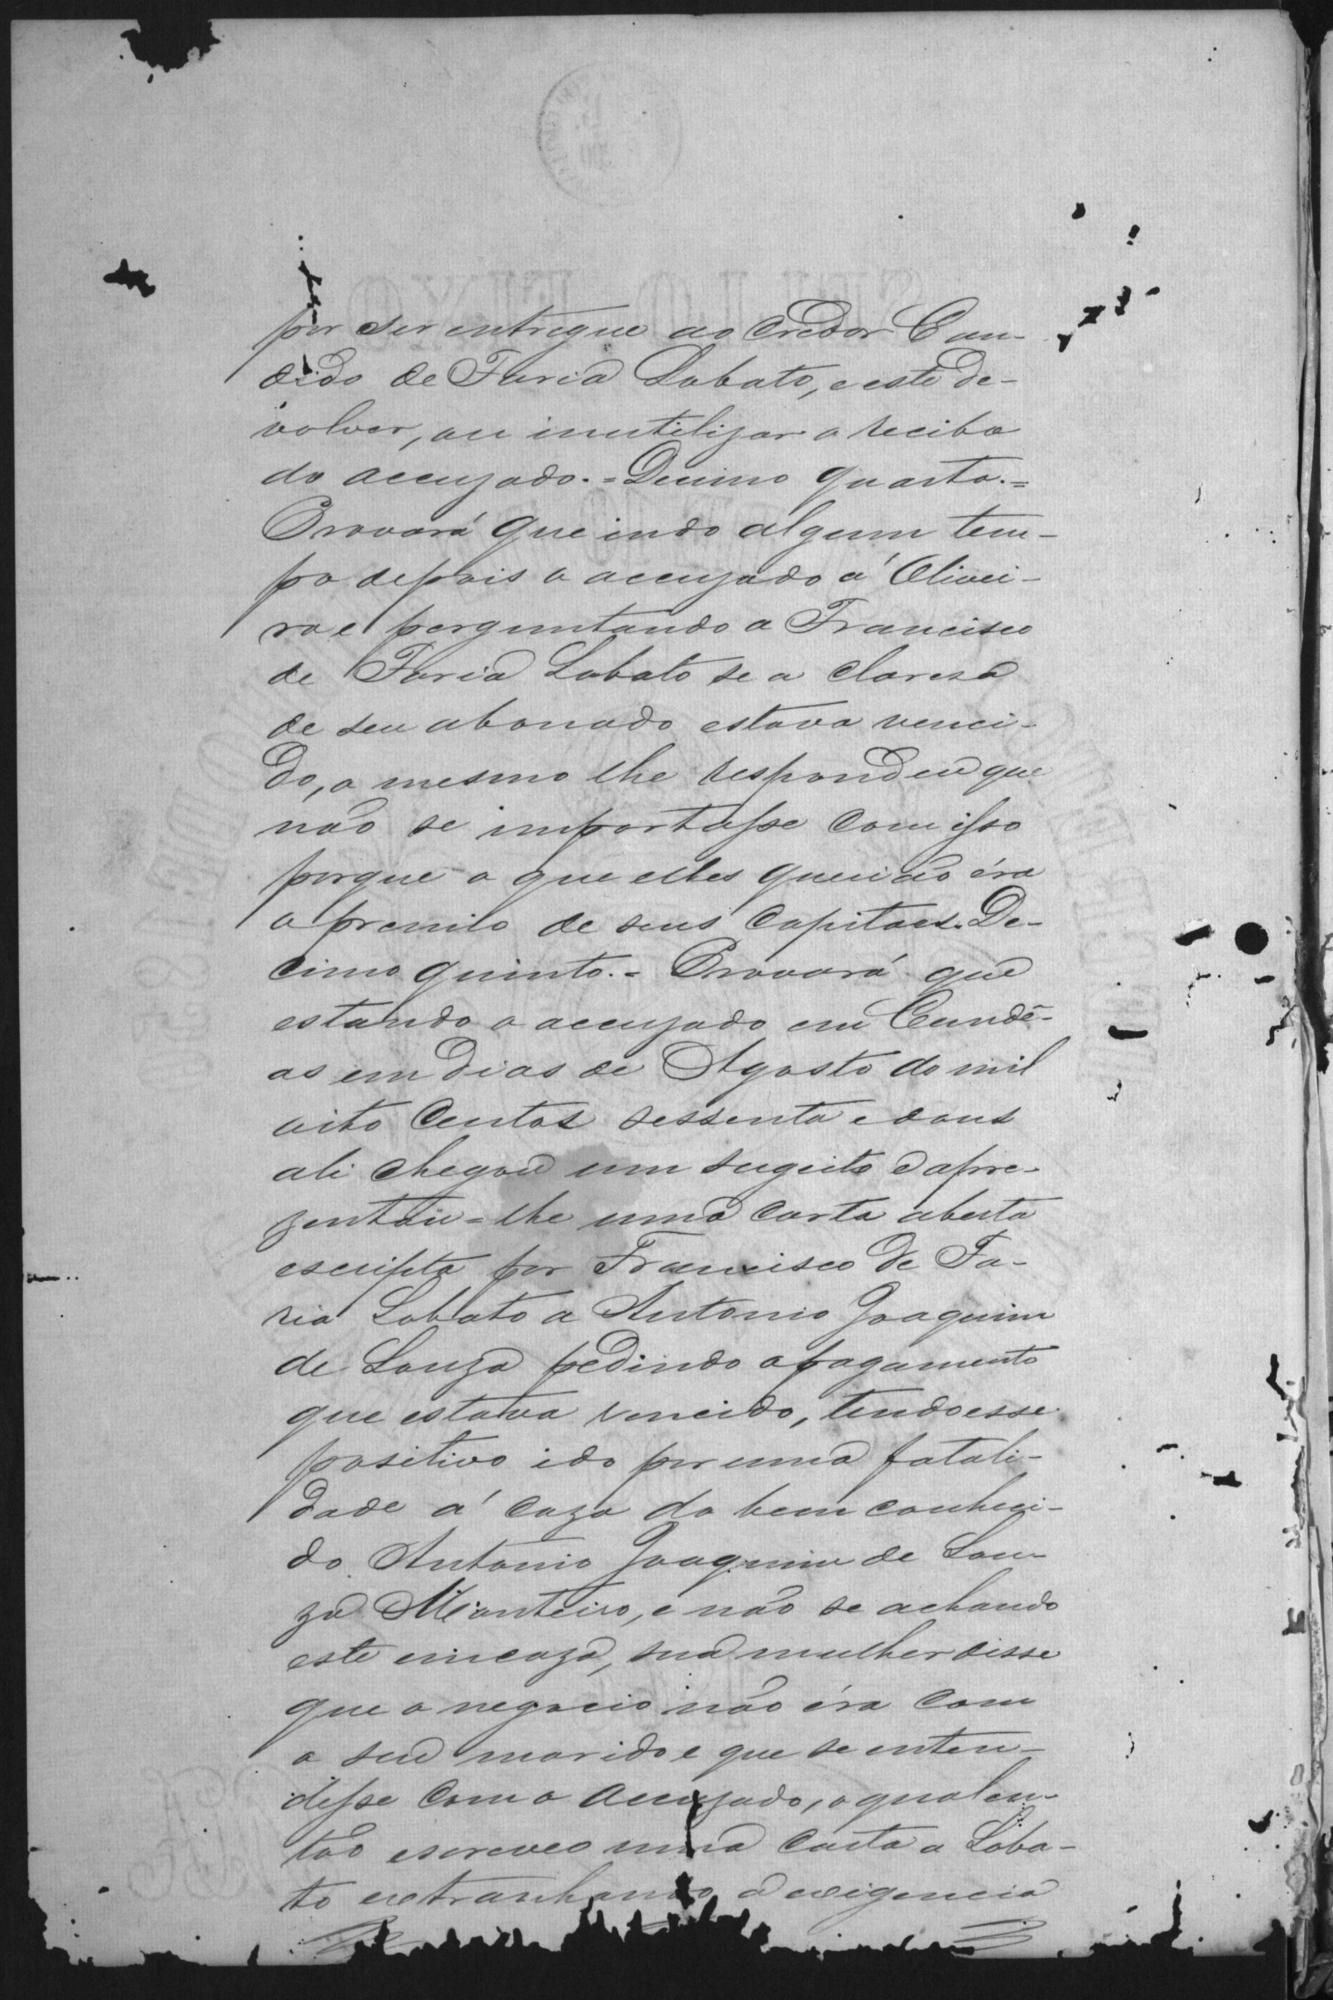 por ser entregue ao credor Can-
dido de Faria Lobato, e este de-
volver, ou inutilizar o recibo
do accuzado. = Decimo quarto. =
Provará que indo algum tem-
po depois o accuzado á Olivei-
ra e perguntando a Francisco
de Faria Lobato se a claresa
de seu abonado estava venci-
da, o mesmo lhe respondeu que
não se importasse com isso
porque o que elles querião éra
o premio de seus capitaes. De-
cimo quinto. = Provará que
estando o accuzado em Candê-
as em dias de Agosto do mil
oito centos sessenta e dous
ali chegou um sugeito e apre-
zentou-lhe uma carta aberta
escripta por Francisco de Fa-
ria Lobato a Antonio Joaquim
de Souza pedindo o pagamento
que estava vencido, tendo esse
positivo ido por uma fatali-
dade á caza do bem conheci-
do Antonio Joaquim de Sou-
za Monteiro, e não se achando
este em caza, sua mulher disse
que o negocio não éra com
o seu marido e que se enten-
desse com o accuzado, o qual en-
tão escreveo uma carta a Loba-
to extranhando a exigencia